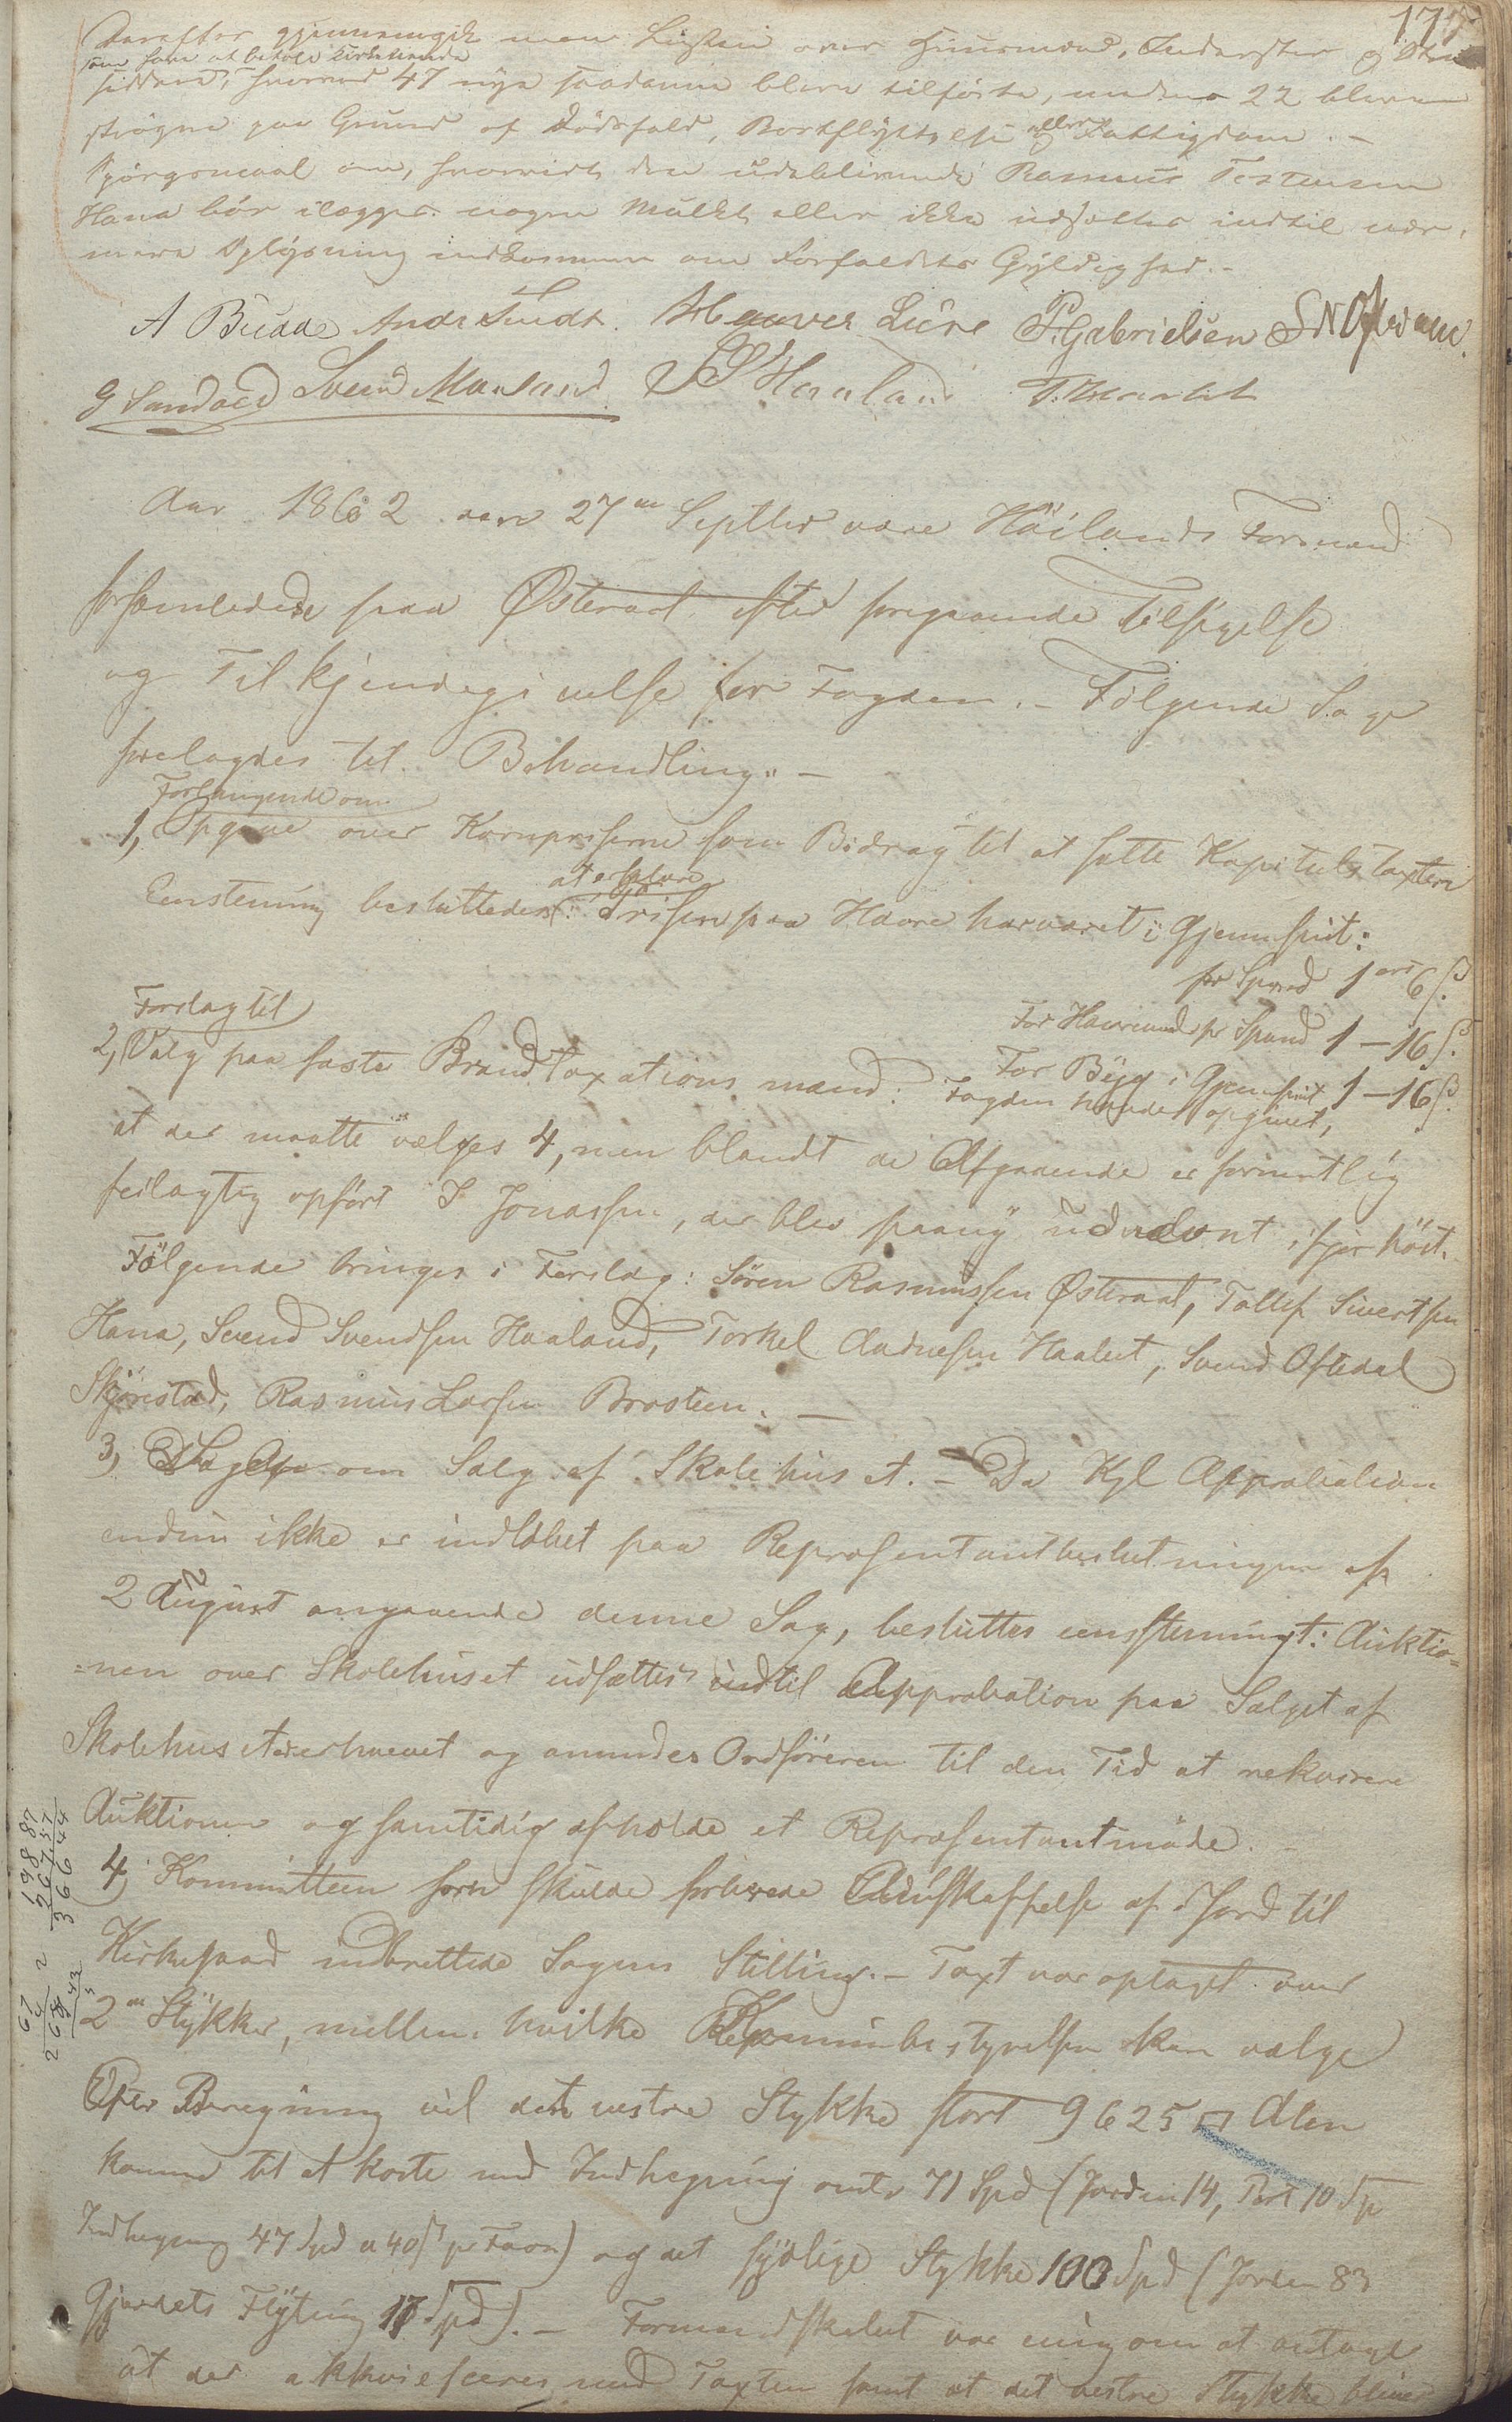 175
Derefter gjennemgik man Listen over Huusmænd, Inderster og
som have at betale
siddere, hvorved 47 nye saadanne bleve tilførte, medens 22 bleve
strøgne paa Grund af Dødsfald, Bortflyttelse eller Fattigdom. –
Spørgsmaal om, hvorvidt den udeblivende Rasmus Tostensen
Hana bør ilægges nogen Mulkt eller ikke udsættes indtil nær-
mere Oplysning indkommer om Forfaldets Gyldighed. –
A Budde Andr Lindt. H Hanver Lure P. Gabrielsen S N Oftedal.
G Sandved Svend Maaland S S Haaland T. Haabet
Aar 1862 den 27de Septber vare Höilands Formænd
forsamlede paa Østeraat efter foregaaende Tilsigelse
og Tilkjendegivelse for Fogden. – Følgende Sager
forelagdes til Behandling: –
Forlangende om
1, Opgave over Kornpriserne som Bidrag til at sætte Kapitelstaxten
at erklære
Eenstemmig besluttedes: Prisen paa Havre har været i Gjennemsnit:
pr Spand 1 ort 6 ß.
For Havremeel pr Spand 1 – 16 ß.
For Byg i Gjensnit 1 – 16 ß.
Forslag til
2, Valg paa faste Brandtaxationsmænd: Fogden havde opgivet,
at der maatte vælges 4, men blandt de Afgaaende er formentlig
feilagtig opført I Jonassen, der blev paany udnævnt ifjor høst.
Følgende bringes i Forslag: Søren Rasmussen Østeraat, Tollef Sivertsen
Hana, Svend Svendsen Haaland, Torkel Andresen Haabet, Svend Oftedal
Skjørestad, Rasmus Larsen Brosteen. –
3, Sagen om Salg af Skolehuset. – Da Kgl Approbation
endnu ikke er indløbet paa Repræsentantbeslutningen af
2 August angaaende denne Sag, besluttes eenstemmigt: Auktio=
=nen over Skolehuset udsættes indtil Approbation paa Salget af
Skolehuset er erhvervet og anmodes Ordføreren til den Tid at rekvirere
Auktionen og samtidig afholde et Repræsentantmøde. –
4, Kommitteen som skulde forberede Anskaffelse af Jord til
Kirkegaard indberettede Sagens Stilling. – Taxt var optaget over
2de Stykker, mellem hvilke Kommunebestyrelsen kan vælge
Efter Beregning vil det vestre Stykke stort 9625 □ Alen
komme til at koste med Indhegning omtr 71 Spd (Jorden 14, Port 10 Sp
Indhegning 47 Spd a 40 ß pr Favn) og det sydlige Stykke 100 Spd (Jorden 83
Gjerdets Flytning 17 Spd). – Formandskabet var enig om at antage
at der akkviesceres med Taxten samt at det vestre Stykke bliver
198 87
267 57
366 44
67
4
268